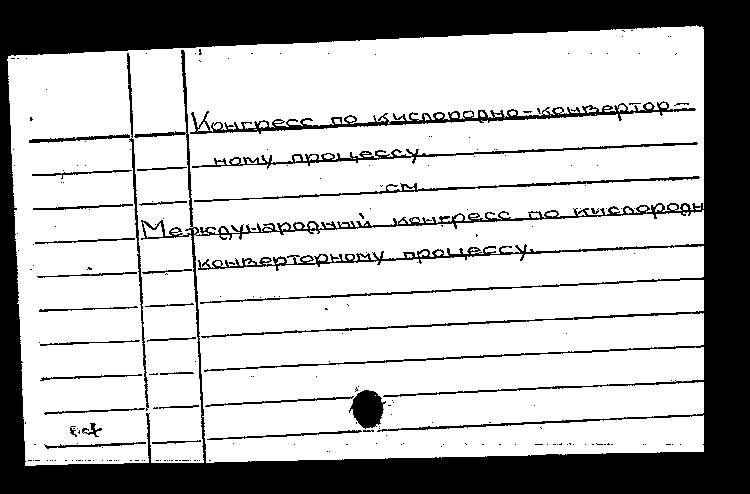 Конгресс по кислородно-конвертор-
ному процессу.
см.
Международный конгресс по кислородн
конверторному процессу.